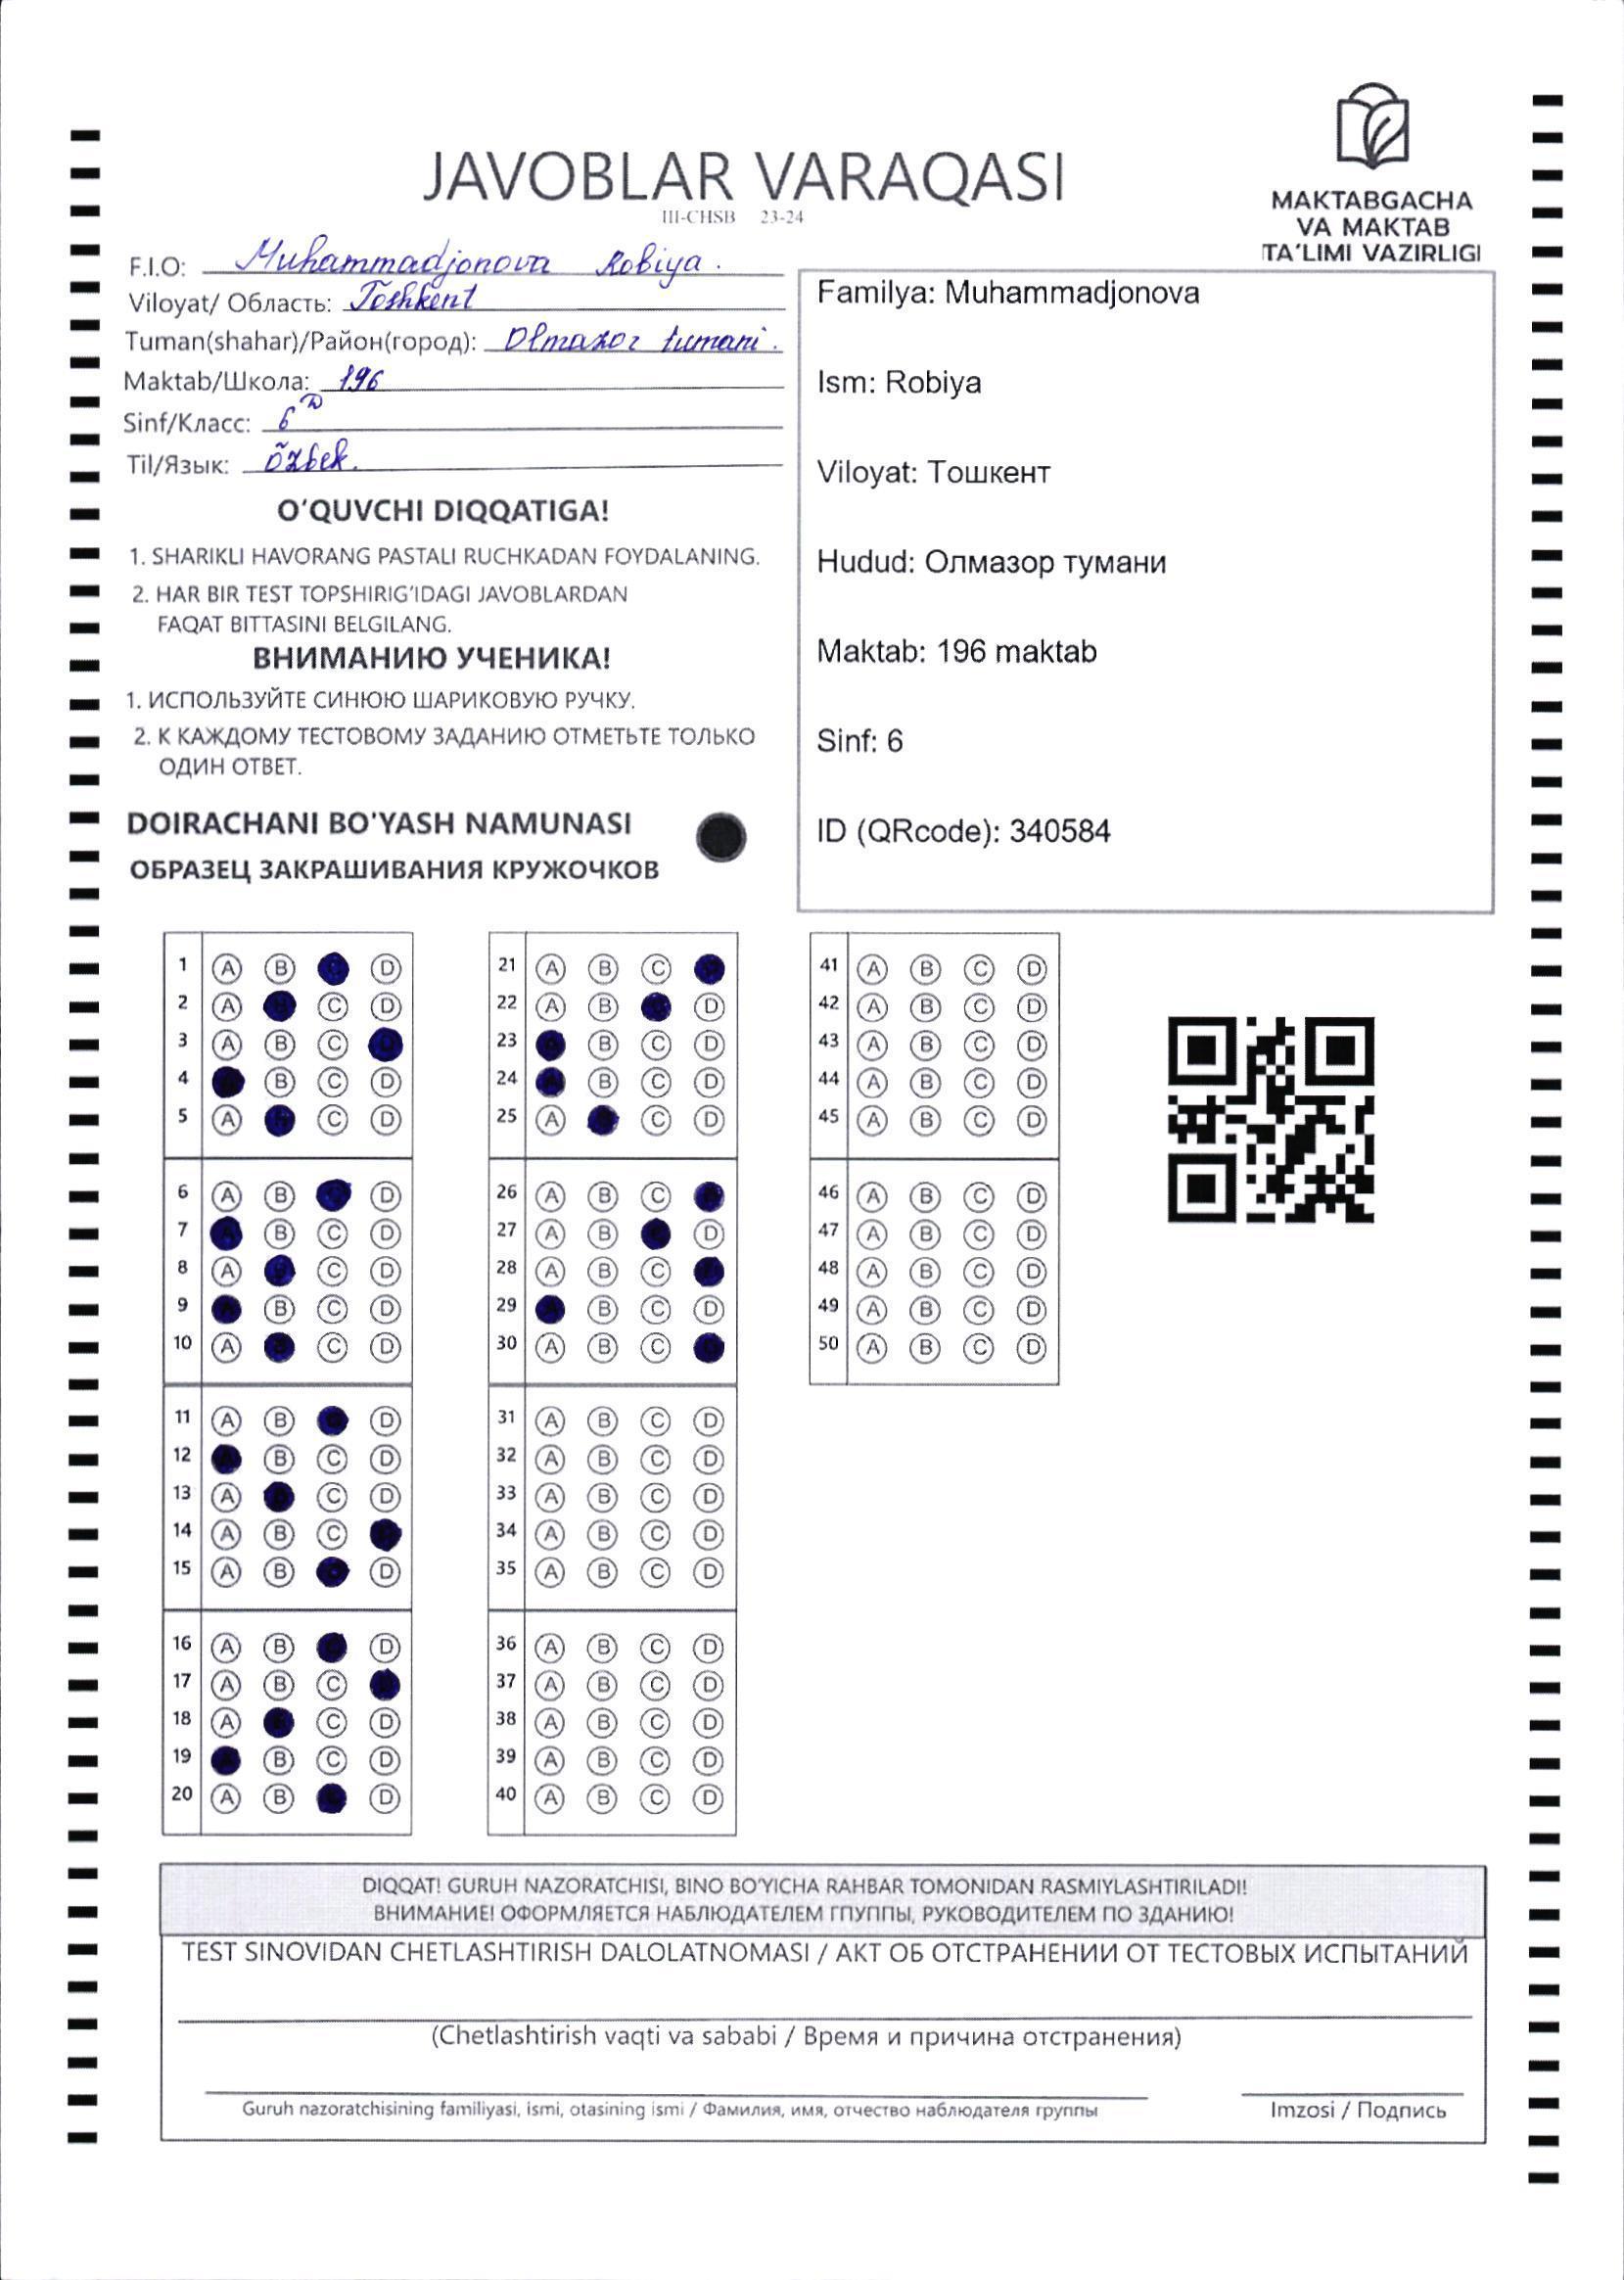 JAVOBLAR VARAQASI
III-CHSB 23-24
MAKTABGACHA
VA MAKTAB
TA'LIMI VAZIRLIGI
F.I.O: Muhammadjonova Robiya.
Viloyat/ Область: Toshkent
Tuman(shahar)/Район(город): Olmazor tumani.
Maktab/Школа: 196
Sinf/Класс: 6 D
Til/Язык: õzbek.
Familya: Muhammadjonova
Ism: Robiya
Viloyat: Тошкент
Hudud: Олмазор тумани
Maktab: 196 maktab
Sinf: 6
ID (QRcode): 340584
O'QUVCHI DIQQATIGA!
1. SHARIKLI HAVORANG PASTALI RUCHKADAN FOYDALANING.
2. HAR BIR TEST TOPSHIRIG'IDAGI JAVOBLARDAN
FAQAT BITTASINI BELGILANG.
ВНИМАНИЮ УЧЕНИКА!
1. ИСПОЛЬЗУЙТЕ СИНЮЮ ШАРИКОВУЮ РУЧКУ.
2. К КАЖДОМУ ТЕСТОВОМУ ЗАДАНИЮ ОТМЕТЬТЕ ТОЛЬКО
ОДИН ОТВЕТ.
DOIRACHANI BO'YASH NAMUNASI
ОБРАЗЕЦ ЗАКРАШИВАНИЯ КРУЖОЧКОВ
1 A B D
2 A C D
3 A B C
4 B C D
5 A C D
6 A B D
7 B C D
8 A C D
9 B C D
10 A C D
11 A B D
12 B C D
13 A C D
14 A B C
15 A B D
16 A B D
17 A B C
18 A C D
19 B C D
20 A B D
21 A B C
22 A B D
23 B C D
24 B C D
25 A C D
26 A B C
27 A B D
28 A B C
29 B C D
30 A B C
31 A B C D
32 A B C D
33 A B C D
34 A B C D
35 A B C D
36 A B C D
37 A B C D
38 A B C D
39 A B C D
40 A B C D
41 A B C D
42 A B C D
43 A B C D
44 A B C D
45 A B C D
46 A B C D
47 A B C D
48 A B C D
49 A B C D
50 A B C D
DIQQAT! GURUH NAZORATCHISI, BINO BO'YICHA RAHBAR TOMONIDAN RASMIYLASHTIRILADI!
ВНИМАНИЕ! ОФОРМЛЯЕТСЯ НАБЛЮДАТЕЛЕМ ГПУППЫ, РУКОВОДИТЕЛЕМ ПО ЗДАНИЮ!
TEST SINOVIDAN CHETLASHTIRISH DALOLATNOMASI / АКТ ОБ ОТСТРАНЕНИИ ОТ ТЕСТОВЫХ ИСПЫТАНИЙ
(Chetlashtirish vaqti va sababi / Время и причина отстранения)
Guruh nazoratchisining familiyasi, ismi, otasining ismi / Фамилия, имя, отчество наблюдателя группы
Imzosi / Подпись